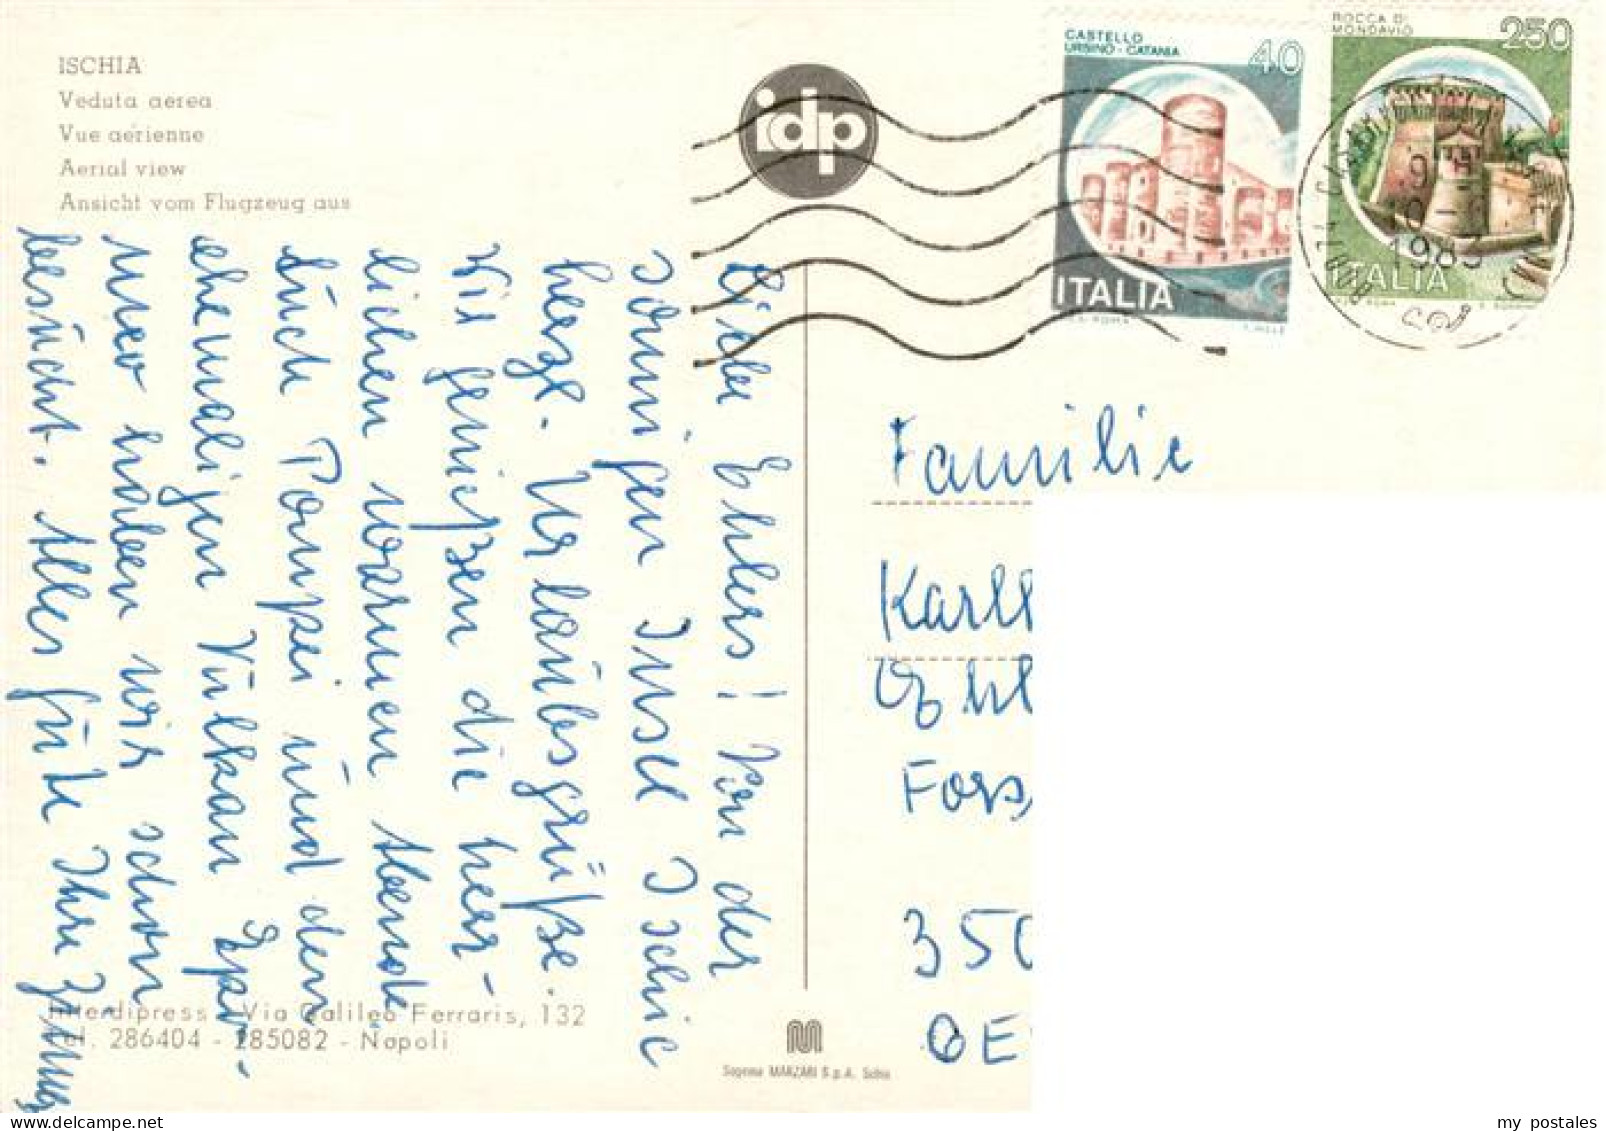 ISCHIA
Veduta aerea
Vue aérienne
Aerial view
Ansicht vom Flugzeug aus
idp
CASTELLO
URSINO - CATANIA
40
ITALIA
ROCCA DI
MONDAVIO
250
ITALIA
1983
Liebe Ehlers! Von der
sonnigen Insel Ischia
herzl. Urlaubsgrüße.
Wir genießen die herr-
lichen warmen Abende
Auch Pompei und den
ehemaligen Vulkan Epo-
meo haben wir schon
besucht. Alles Gute Ihre
Familie
Karl
Ehl
Fors
350
OE
Interdipress - Via Galileo Ferraris, 132
Tel. 286404 - 285082 - Napoli
MARZARI S.p.A. Schio
my postales